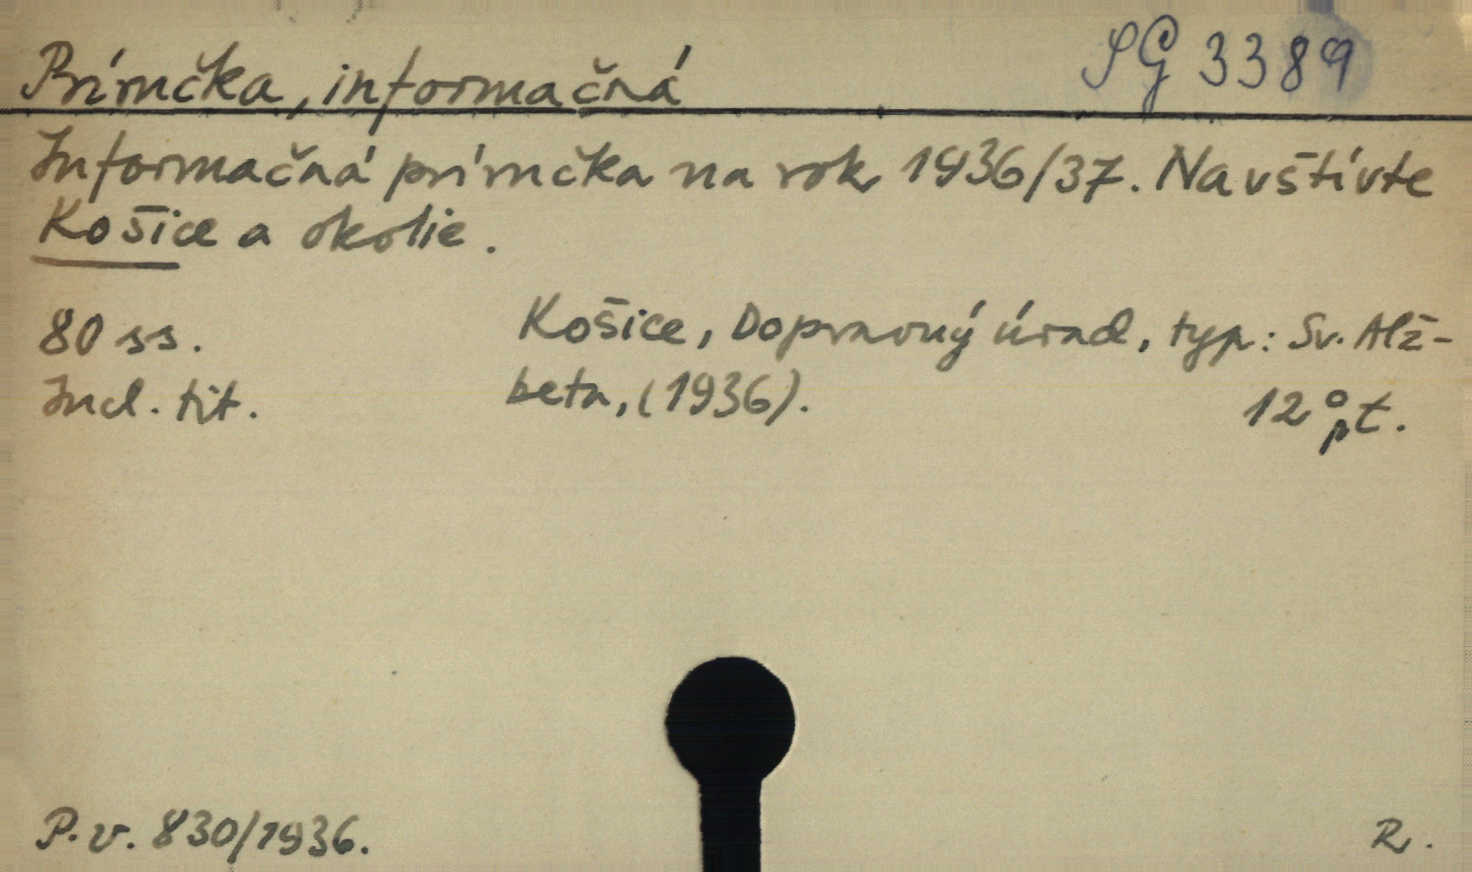 Príručka, informačná
SG 3389
Informačná príručka na rok 1936/37. Navštívte
Košice a okolie.
80 ss.
Košice, Dopravný úrad, typ: Sv. Alž-
Incl. tit.
beta, (1936).
12° pt.
P. v. 830/1936.
R.